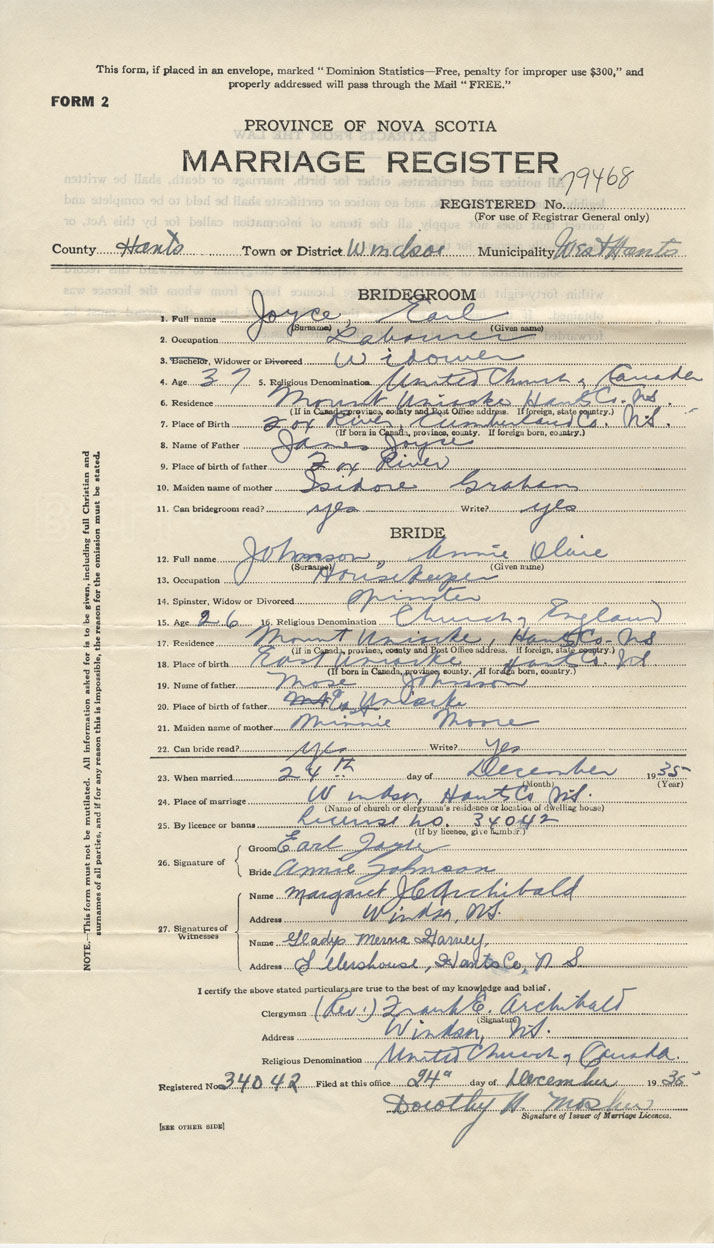 This form, if placed in an envelope, marked “ Dominion Statistics—Free, penalty for improper use $300,” and
properly addressed will pass through the Mail “ FREE.”
FORM 2
PROVINCE OF NOVA SCOTIA
MARRIAGE REGISTER
79468
REGISTERED No.
(For use of Registrar General only)
County Hants Town or District Windsor Municipality West Hants
BRIDEGROOM
1. Full name Joyce, Earl
(Surname) (Given name)
2. Occupation Labourer
3. Bachelor, Widower or Divorced Widower
4. Age 37 5. Religious Denomination United Church of Canada
6. Residence Mount Uniacke Hants Co. N.S.
(If in Canada, province, county and Post Office address. If foreign, state country.)
7. Place of Birth Fox River, Cumberland Co. N.S.
(If born in Canada, province, county. If foreign born, country.)
8. Name of Father James Joyce
9. Place of birth of father Fox River
10. Maiden name of mother Isidore Graham
11. Can bridegroom read? yes Write? yes
BRIDE
12. Full name Johnson, Annie Olive
(Surname) (Given name)
13. Occupation Housekeeper
14. Spinster, Widow or Divorced Spinster
15. Age 26 16. Religious Denomination Church of England
17. Residence Mount Uniacke, Hants Co. N.S
(If in Canada, province, county and Post Office address. If foreign, state country.)
18. Place of birth East Uniacke Hants Co. N.S
(If born in Canada, province, county. If foreign born, country.)
19. Name of father Mose Johnson
20. Place of birth of father East Uniacke
21. Maiden name of mother Minnie Moore
22. Can bride read? yes Write? Yes
23. When married 24th day of December 1935
(Month) (Year)
24. Place of marriage Windsor, Hants Co N.S.
(Name of church or clergyman's residence or location of dwelling house)
25. By licence or banns License no. 34042
(If by licence, give number)
26. Signature of
Groom Earl Joyce
Bride Annie Johnson
27. Signatures of Witnesses
Name Margaret J C Archibald
Address Windsor, N.S.
Name Gladys Merna Harvey,
Address Ellershouse, Hants Co, N S.
I certify the above stated particulars are true to the best of my knowledge and belief.
Clergyman (Rev.) Frank E. Archibald
(Signature)
Address Windsor, N.S.
Religious Denomination United Church of Canada.
Registered No. 34042 Filed at this office 24th day of December 1935
Dorothy
Signature of Issuer of Marriage Licences.
[SEE OTHER SIDE]
NOTE.—This form must not be mutilated. All information asked for is to be given, including full Christian and
surnames of all parties, and if for any reason this is impossible, the reason for the omission must be stated.